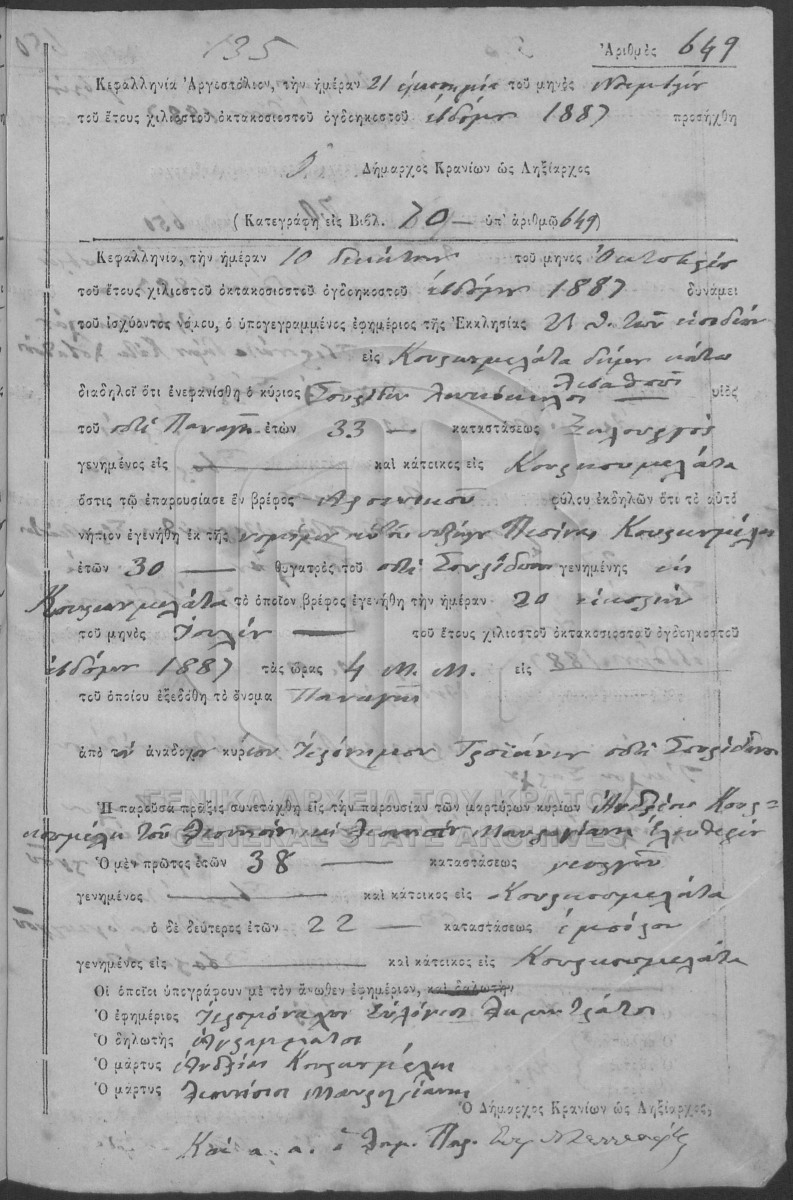 135 Ἀριθμὸς 649
Κεφαλληνία Ἀργοστόλιον, τὴν ἡμέραν 21 τοῦ μηνὸς
τοῦ ἔτους χιλιοστοῦ ὀκτακοσιοστοῦ ὀγδοηκοστοῦ ἑβδόμου 1887 προσήχθη
Ὁ Δήμαρχος Κρανίων ὡς Ληξίαρχος
(Κατεγράφη εἰς Βιβλ. 70 — ὑπ' ἀριθμῷ 649)
Κεφαλληνία, τὴν ἡμέραν 10 δεκάτην τοῦ μηνὸς Ὀκτωβρίου
τοῦ ἔτους χιλιοστοῦ ὀκτακοσιοστοῦ ὀγδοηκοστοῦ ἑβδόμου 1887 δυνάμει
τοῦ ἰσχύοντος νόμου, ὁ ὑπογεγραμμένος ἐφημέριος τῆς Ἐκκλησίας τῶν εἰσοδίων
εἰς Κουρκουμελάτα δήμου κάτω
διαδηλοῖ ὅτι ἐνεφανίσθη ὁ κύριος Σπυρίδων — υἱὸς
τοῦ ποτὲ Παναγῆ ἐτῶν 33 — καταστάσεως ξυλουργὸς
γενημένος εἰς — καὶ κάτοικος εἰς Κουρκουμελάτα
ὅστις τῷ ἐπαρουσίασε ἓν βρέφος ἀρσενικοῦ φύλου ἐκδηλῶν ὅτι τὸ αὐτὸ
νήπιον ἐγενήθη ἐκ τῆς νομίμου αὐτοῦ συζύγου Κουρκουμέλη
ἐτῶν 30 — θυγατρὸς τοῦ ποτὲ Σπυρίδωνος γενημένης εἰς
Κουρκουμελάτα τὸ ὁποῖον βρέφος ἐγενήθη τὴν ἡμέραν 20 εἰκοστὴν
τοῦ μηνὸς Ἰουλίου — τοῦ ἔτους χιλιοστοῦ ὀκτακοσιοσταῦ ὀγδοηκοστοῦ
ἑβδόμου 1887 τὰς ὥρας 4 Μ. Μ. εἰς —
τοῦ ὁποίου ἐξεδόθη τὸ ὄνομα Παναγῆς
ἀπὸ τὸν ἀνάδοχον κύριον Ἱερώνυμον ποτὲ Σπυρίδωνος
Ἡ παροῦσα πρᾶξις συνετάχθη εἰς τὴν παρουσίαν τῶν μαρτύρων κυρίων Ἀνδρέου Κουρ-
κουμέλη τοῦ Διονυσίου καὶ Διονυσίου Μαυρογιάννη Ἐλευθερίου
Ὁ μὲν πρῶτος ἐτῶν 38 — καταστάσεως γεωργοῦ
γενημένος — καὶ κάτοικος εἰς Κουρκουμελάτα
ὁ δὲ δεύτερος ἐτῶν 22 — καταστάσεως ἐμπόρου
γενημένος εἰς — καὶ κάτοικος εἰς Κουρκουμελάτα
Οἱ ὁποῖοι ὑπογράφουν μὲ τὸν ἄνωθεν ἐφημέριον, καὶ δηλωτὴν
Ὁ ἐφημέριος Ἱερομόναχος
Ὁ δηλωτὴς ἀγράμματος
Ὁ μάρτυς Ἀνδρέας Κουρκουμέλης
Ὁ μαρτυς Διονύσιος Μαυρογιάννης
Ὁ Δήμαρχος Κρανίων ὡς Ληξίαρχος,
ΓΕΝΙΚΑ ΑΡΧΕΙΑ ΤΟΥ ΚΡΑΤΟΥΣ
GENERAL STATE ARCHIVES